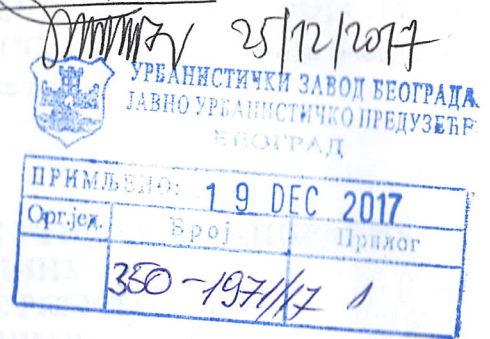 25/12/2017
УРБАНИСТИЧКИ ЗАВОД БЕОГРАДА
ЈАВНО УРБАНИСТИЧКО ПРЕДУЗЕЋЕ
БЕОГРАД
ПРИМЉЕНО: 19 DEC 2017
Орг.јед. Број Прилог
350-1971/17 1